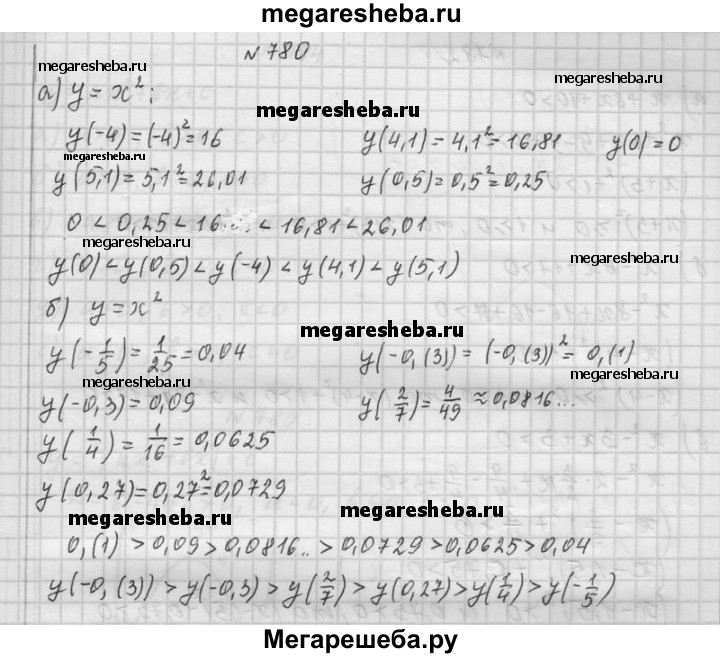 megaresheba.ru
№ 780
megaresheba.ru
megaresheba.ru
а) y = x²:
megaresheba.ru
y(-4) = (-4)² = 16 y(4,1) = 4,1² = 16,81 y(0) = 0
megaresheba.ru
y(5,1) = 5,1² = 26,01 y(0,5) = 0,5² = 0,25
0 < 0,25 < 16 < 16,81 < 26,01
megaresheba.ru
y(0) < y(0,5) < y(-4) < y(4,1) < y(5,1)
б) y = x²
megaresheba.ru
y(-1/5) = 1/25 = 0,04 y(-0,(3)) = (-0,(3))² = 0,(1)
megaresheba.ru
megaresheba.ru
y(-0,3) = 0,09 y(2/7) = 4/49 ≈ 0,0816...
y(1/4) = 1/16 = 0,0625
y(0,27) = 0,27² = 0,0729
megaresheba.ru
megaresheba.ru
0,(1) > 0,09 > 0,0816.. > 0,0729 > 0,0625 > 0,04
y(-0,(3)) > y(-0,3) > y(2/7) > y(0,27) > y(1/4) > y(-1/5)
Мегарешеба.ру